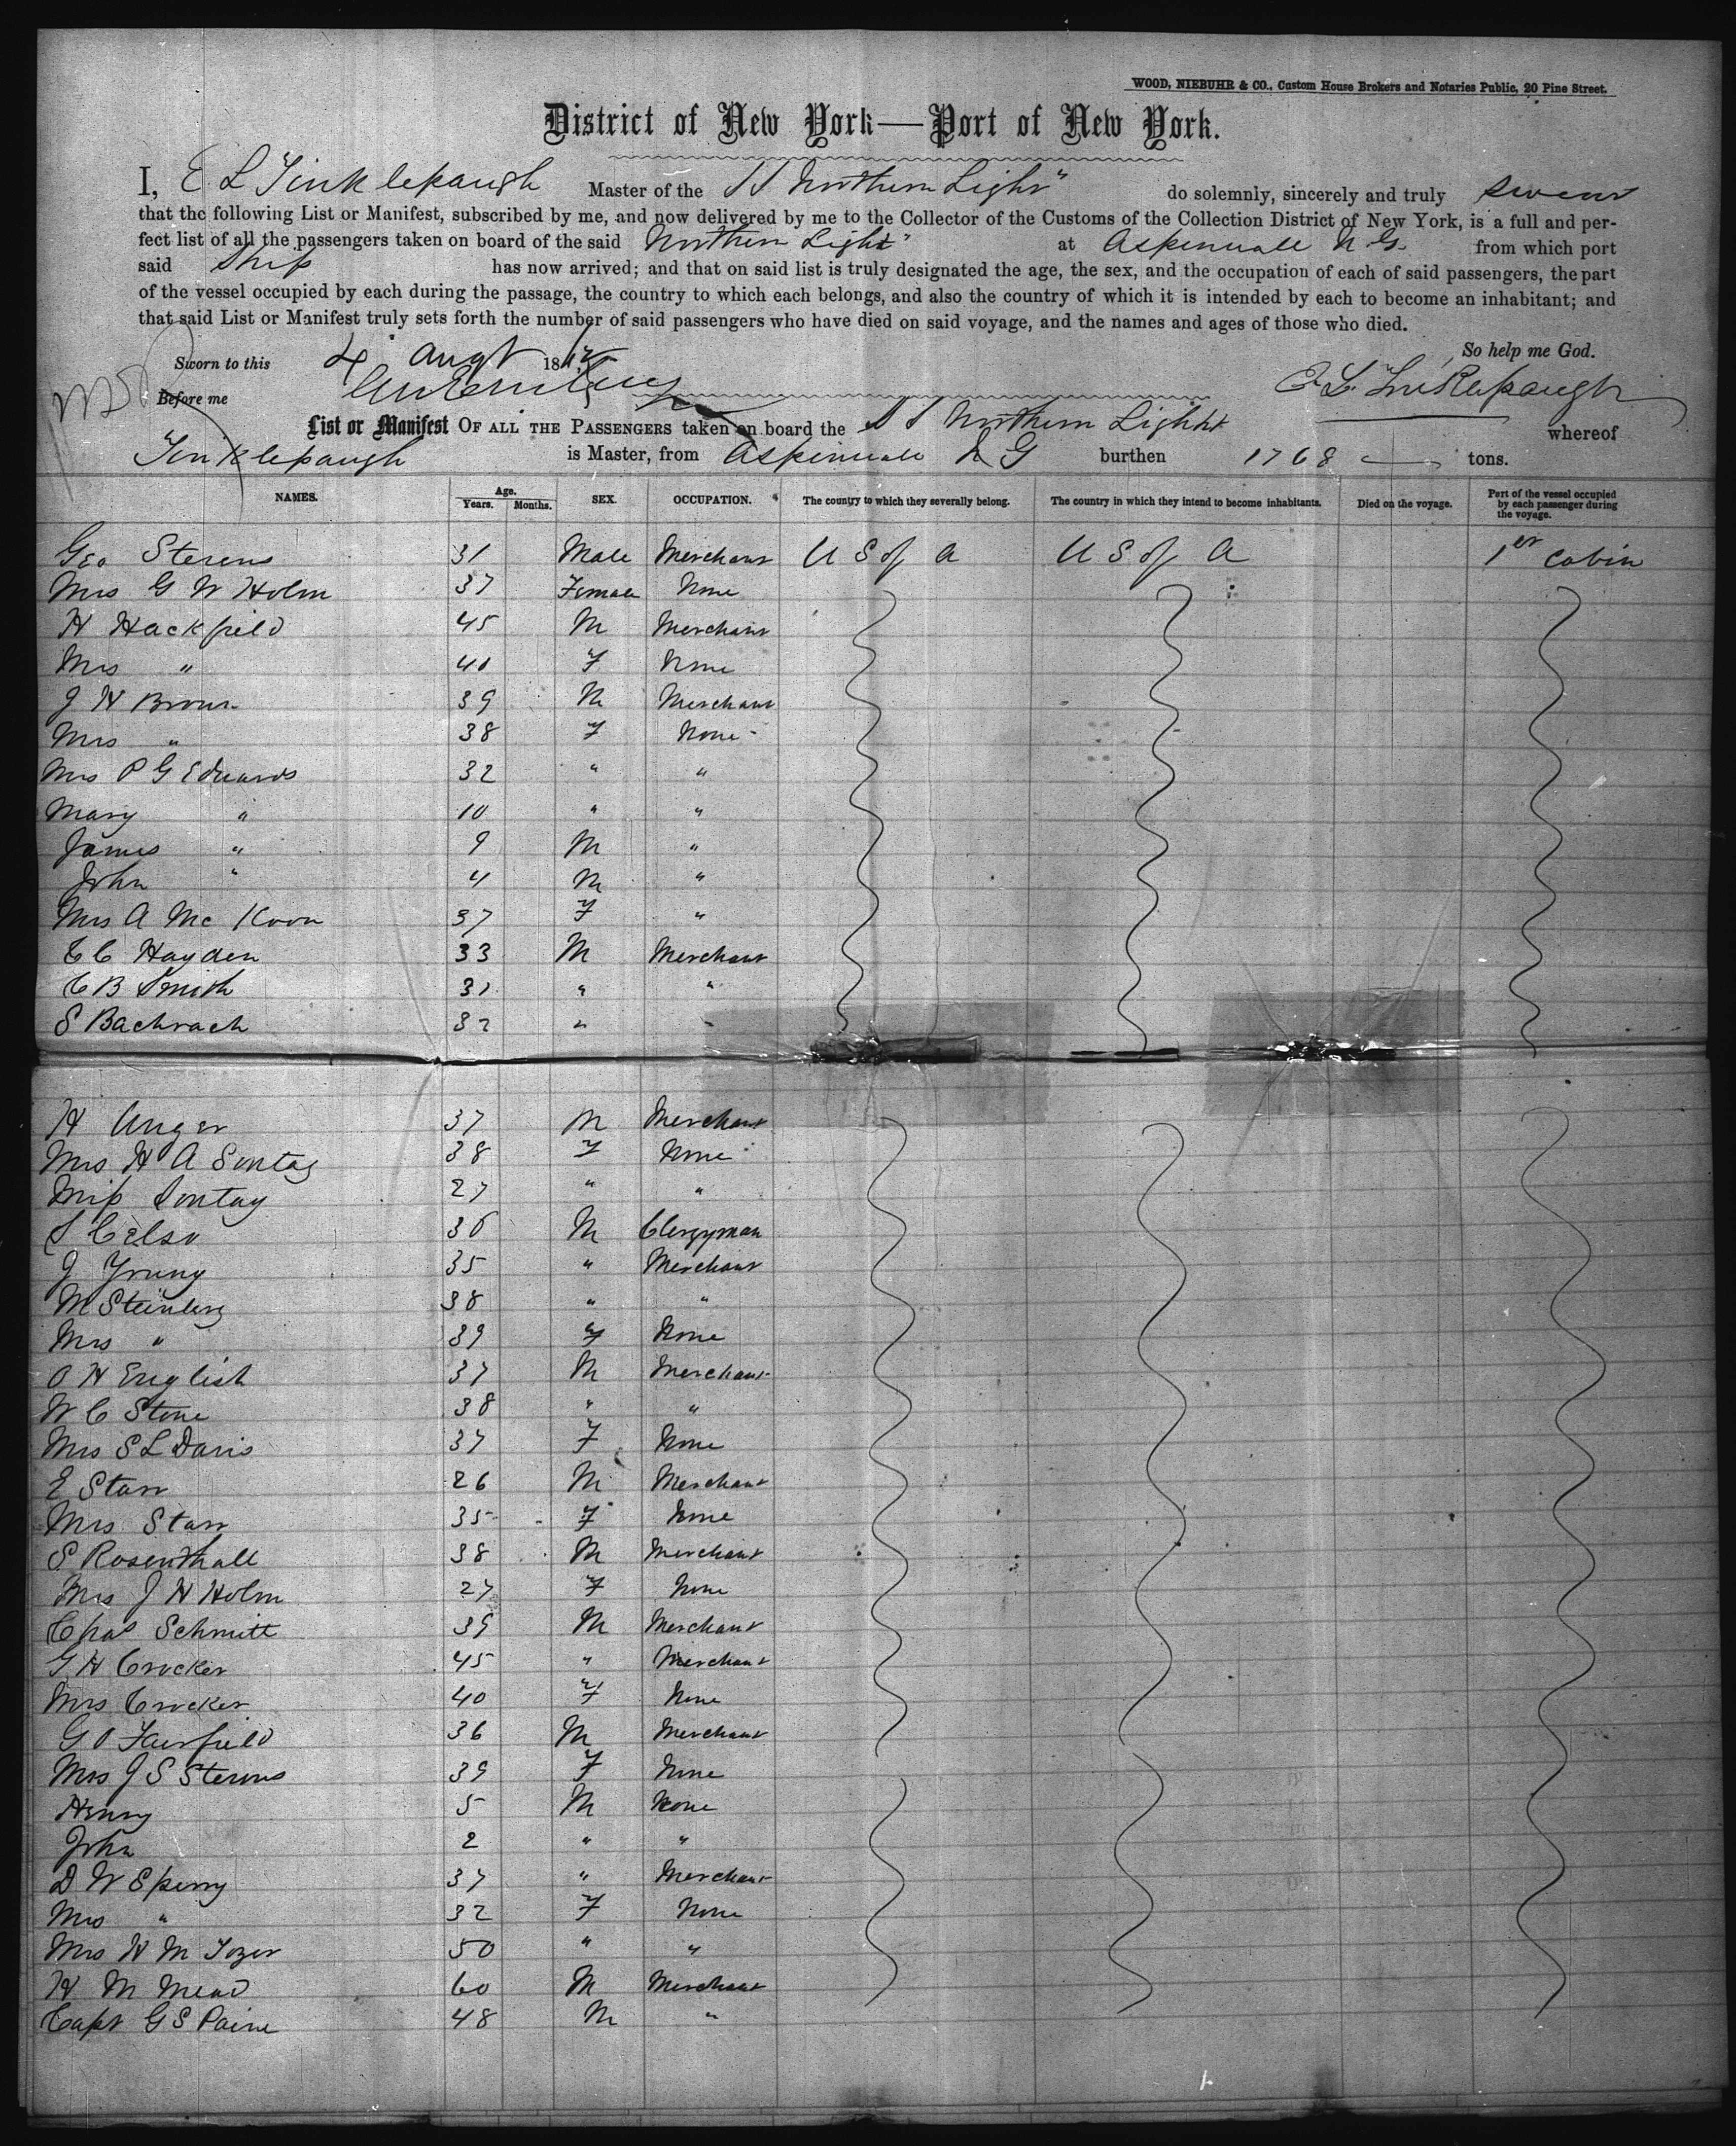 WOOD, NIEBUHR & CO., Custom House Brokers and Notaries Public, 20 Pine Street.
District of New York—Port of New York.
I, E L Tinklepaugh Master of the SS Northern Light" do solemnly, sincerely and truly swear
that the following List or Manifest, subscribed by me, and now delivered by me to the Collector of the Customs of the Collection District of New York, is a full and per-
fect list of all the passengers taken on board of the said Northern Light" at Aspinwall N. G. from which port
said Ship has now arrived; and that on said list is truly designated the age, the sex, and the occupation of each of said passengers, the part
of the vessel occupied by each during the passage, the country to which each belongs, and also the country of which it is intended by each to become an inhabitant; and
that said List or Manifest truly sets forth the number of said passengers who have died on said voyage, and the names and ages of those who died.
Sworn to this 4 Augt 18 So help me God.
Before me E L Tinklepaugh
List or Manifest OF ALL THE PASSENGERS taken on board the S S Northern Light whereof
Tinklepaugh is Master, from Aspinwall N G burthen 1768 tons.
NAMES. Age. Years. Months. SEX. OCCUPATION. The country to which they severally belong. The country in which they intend to become inhabitants. Died on the voyage. Part of the vessel occupied by each passenger during the voyage.
Geo Stevens 31 Male Merchant U S of A U S of A 1st Cabin
Mrs G W Holm 37 Female None
H Hackfield 45 M Merchant
Mrs " 40 F None
J H Brown 39 M Merchant
Mrs " 38 F None
Mrs P G Edwards 32 " "
Mary " 10 " "
James " 9 M "
John " 4 M "
Mrs A Mc Koon 37 F "
E C Hayden 33 M Merchant
C B Smith 31 " "
S Bachrach 32 " "
H Unger 37 M Merchant
Mrs H A Sontag 38 F None
Miss Sontag 27 " "
S Celso 36 M Clergyman
J Young 35 " Merchant
M Steinberg 38 " "
Mrs " 39 F None
O H English 37 M Merchant
W C Stone 38 " "
Mrs S L Davis 37 F None
E Starr 26 M Merchant
Mrs Starr 35 F None
S Rosenthall 38 M Merchant
Mrs J H Holm 27 F None
Chas Schmitt 39 M Merchant
G H Crocker 45 " Merchant
Mrs Crocker 40 F None
G O Fairfield 36 M Merchant
Mrs J S Stevens 39 F None
Henry 5 M None
John 2 " "
D W Sperry 37 " Merchant
Mrs " 32 F None
Mrs H M Tozer 50 " "
H M Mead 60 M Merchant
Capt G S Paine 48 M "